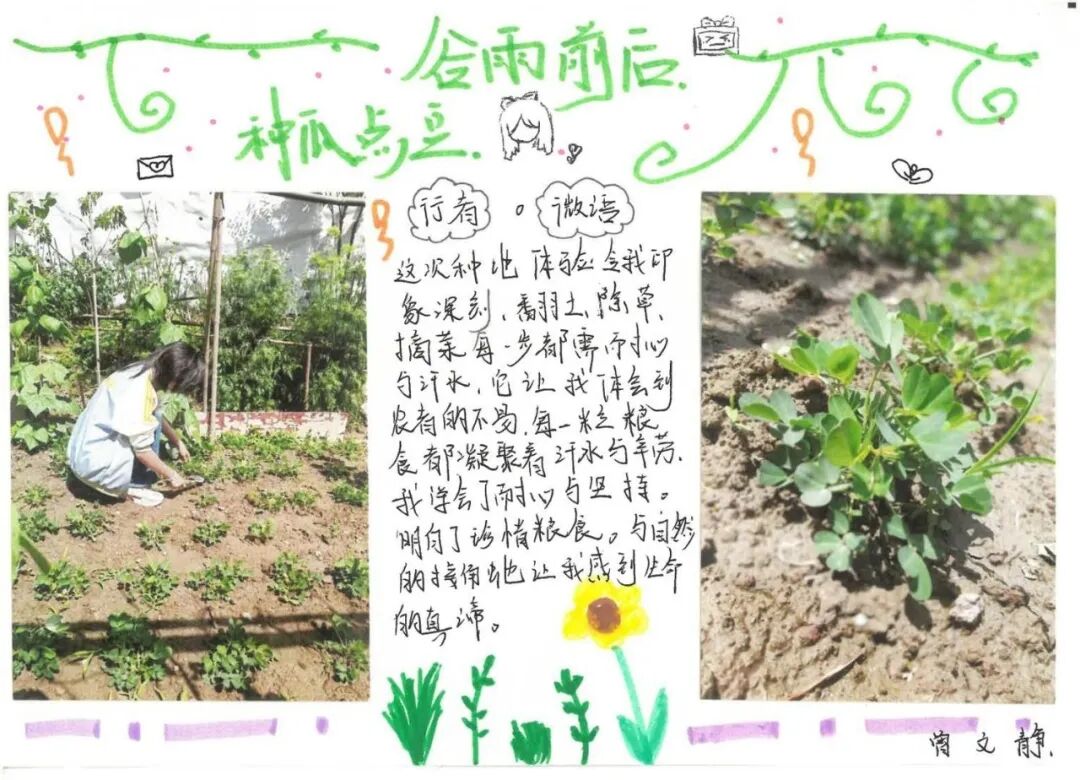 谷雨前后.
种瓜点豆.
行者。微语
这次种地体验令我印
象深刻、翻土、除草、
摘菜每一步都需耐心
与汗水,它让我体会到
农者的不易,每一粒粮
食都凝聚着汗水与辛劳.
我学会了耐心与坚持。
明白了珍惜粮食。与自然
的接触也让我感到生命
的真谛。
曾文静.